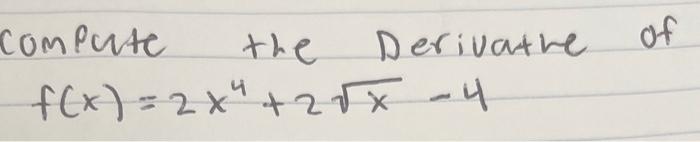 compute the Derivative of
f(x) = 2x⁴ + 2√x - 4